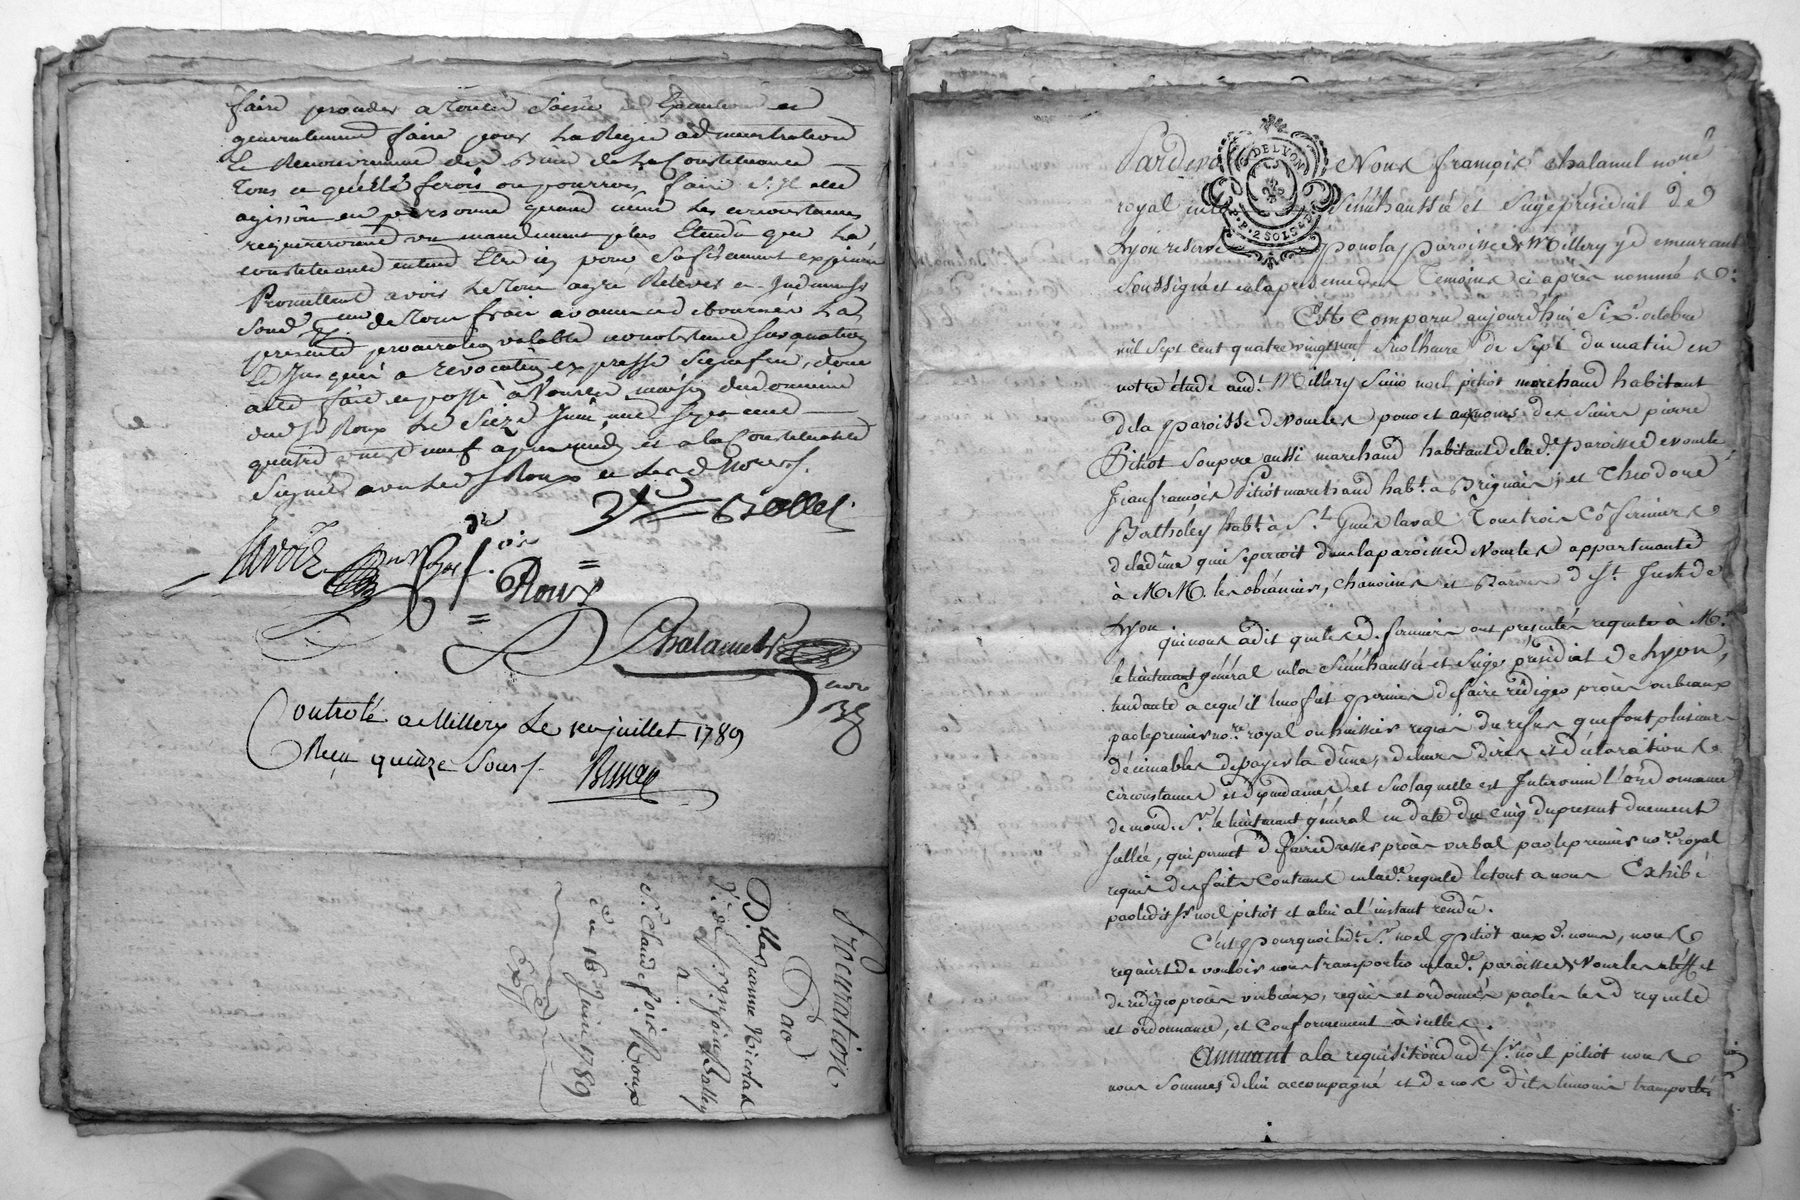 faire proceder a toutes saisies
generallement faire pour la Regie administration
et Recouvrement des Biens de la Constituante
tous ce qu'elle feroit ou pourroit faire sy elle
agissoit en personne quand meme les circonstances
requereroient un mandement plus Etendu que la
constituante entend Etre icy pour suffisament exprimé
Promettant avoir le tout agréé Relever et Indemniser
de tous frais
presente procuration valable nonobstant surannation
et Jusques a revocation expresse signifiée, dont
acte fait et passé à Vourles maison du domicile
dud. Sr Roux le Seize Juin mil sept cent
quatre vingt neuf apres midy et a la Constituante
Signé avec led. Sr Roux et lesd. Notres.
Balley
Savoie
Roux
Chalamel
Controlé a Millery le 1er juillet 1789
Reçu quinze Sous
Procuration
Par
Dlle Jeanne Nicolas
Ve de Sr françois Balley
a
Sr Claude fois Roux
Du 16 Juin 1789
Expée
G. DE LYON
2 SOLS
Pardevant Nous françois Chalamel notre
royal en la Sénéchaussée et Siége présidial de
Lyon reservé pour la paroisse de Millery y demeurant
Soussigné et en la présence des Temoins ci après nommés
Est Comparu aujourd'hui Six 8. octobre
mil sept cent quatre vingt neuf Sur l'heure de Sept du matin en
notre étude aud.t Millery Sieur noel pitiot marchand habitant
de la paroisse de Vourles pour et aux noms des Sieurs pierre
Pitiot Son pere aussi marchand habitant de lad.e paroisse de vourles
Jean françois Pitiot marchand hab.t a Brignais, et Théodore
Batholey hab.t à S.t Genis laval Tous trois Cofermiers
de la dime qui se perçoit dans la paroisse de Vourles appartenante
à M.M. les obéanciers, chanoines et Barons de S.t Just de
Lyon
qui nous à dit que lesd. fermiers ont presentés requete à M.r
le lieutenant général en la Sénéchaussée et Siege présidial de Lyon,
tendante a ce qu'il leur fut permis de faire rédiger procès verbaux
par le premier no.re royal ou huissier requis du refus que font plusieurs
décimables de payer la dime, de leurs dires et déclarations
circonstances et dépendances et Sur laquelle est Intervenue l'ordonnance
de mond. S.r le lieutenant général en date du cinq du present duement
Scellée, qui permet de faire dresser procès verbal par le premier no.re royal
requis des faits Contenus en lad.e requete le tout a nous Exhibé
par ledit S.r noel pitiot et a lui a l'instant rendu.
C'est pourquoi led.t S.r noel pitiot auxd. noms, nous
requiert de vouloir nous transporter en lad.e paroisse de Vourles et
de rédiger procès verbaux, requis et ordonnés par les lesd requete
et ordonnance, et Conformement à icelles.
Annuant a la requisition dud.t S.r noel pitiot nous
nous Sommes de lui accompagné et de nos dits temoins transportés